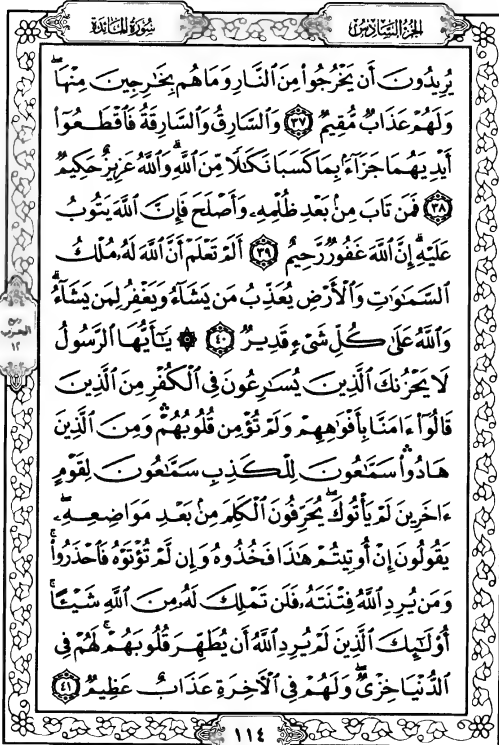 سُورَةُ المَائدَة
الجُزءُ السَّادِسُ
يُرِيدُونَ أَن يَخْرُجُوا۟ مِنَ ٱلنَّارِ وَمَا هُم بِخَـٰرِجِينَ مِنْهَا ۖ
وَلَهُمْ عَذَابٌ مُّقِيمٌ ٣٧ وَٱلسَّارِقُ وَٱلسَّارِقَةُ فَٱقْطَعُوٓا۟
أَيْدِيَهُمَا جَزَآءًۢ بِمَا كَسَبَا نَكَـٰلًا مِّنَ ٱللَّهِ ۗ وَٱللَّهُ عَزِيزٌ حَكِيمٌ
٣٨ فَمَن تَابَ مِنۢ بَعْدِ ظُلْمِهِۦ وَأَصْلَحَ فَإِنَّ ٱللَّهَ يَتُوبُ
عَلَيْهِ ۗ إِنَّ ٱللَّهَ غَفُورٌ رَّحِيمٌ ٣٩ أَلَمْ تَعْلَمْ أَنَّ ٱللَّهَ لَهُۥ مُلْكُ
ٱلسَّمَـٰوَٰتِ وَٱلْأَرْضِ يُعَذِّبُ مَن يَشَآءُ وَيَغْفِرُ لِمَن يَشَآءُ ۗ
وَٱللَّهُ عَلَىٰ كُلِّ شَىْءٍ قَدِيرٌ ٤٠ ۞ يَـٰٓأَيُّهَا ٱلرَّسُولُ
لَا يَحْزُنكَ ٱلَّذِينَ يُسَـٰرِعُونَ فِى ٱلْكُفْرِ مِنَ ٱلَّذِينَ
قَالُوٓا۟ ءَامَنَّا بِأَفْوَٰهِهِمْ وَلَمْ تُؤْمِن قُلُوبُهُمْ ۛ وَمِنَ ٱلَّذِينَ
هَادُوا۟ ۛ سَمَّـٰعُونَ لِلْكَذِبِ سَمَّـٰعُونَ لِقَوْمٍ
ءَاخَرِينَ لَمْ يَأْتُوكَ ۖ يُحَرِّفُونَ ٱلْكَلِمَ مِنۢ بَعْدِ مَوَاضِعِهِۦ ۖ
يَقُولُونَ إِنْ أُوتِيتُمْ هَـٰذَا فَخُذُوهُ وَإِن لَّمْ تُؤْتَوْهُ فَٱحْذَرُوا۟ ۚ
وَمَن يُرِدِ ٱللَّهُ فِتْنَتَهُۥ فَلَن تَمْلِكَ لَهُۥ مِنَ ٱللَّهِ شَيْـًٔا ۚ
أُو۟لَـٰٓئِكَ ٱلَّذِينَ لَمْ يُرِدِ ٱللَّهُ أَن يُطَهِّرَ قُلُوبَهُمْ ۚ لَهُمْ فِى
ٱلدُّنْيَا خِزْىٌ ۖ وَلَهُمْ فِى ٱلْـَٔاخِرَةِ عَذَابٌ عَظِيمٌ ٤١
ربع
الحزب
١٢
١١٤